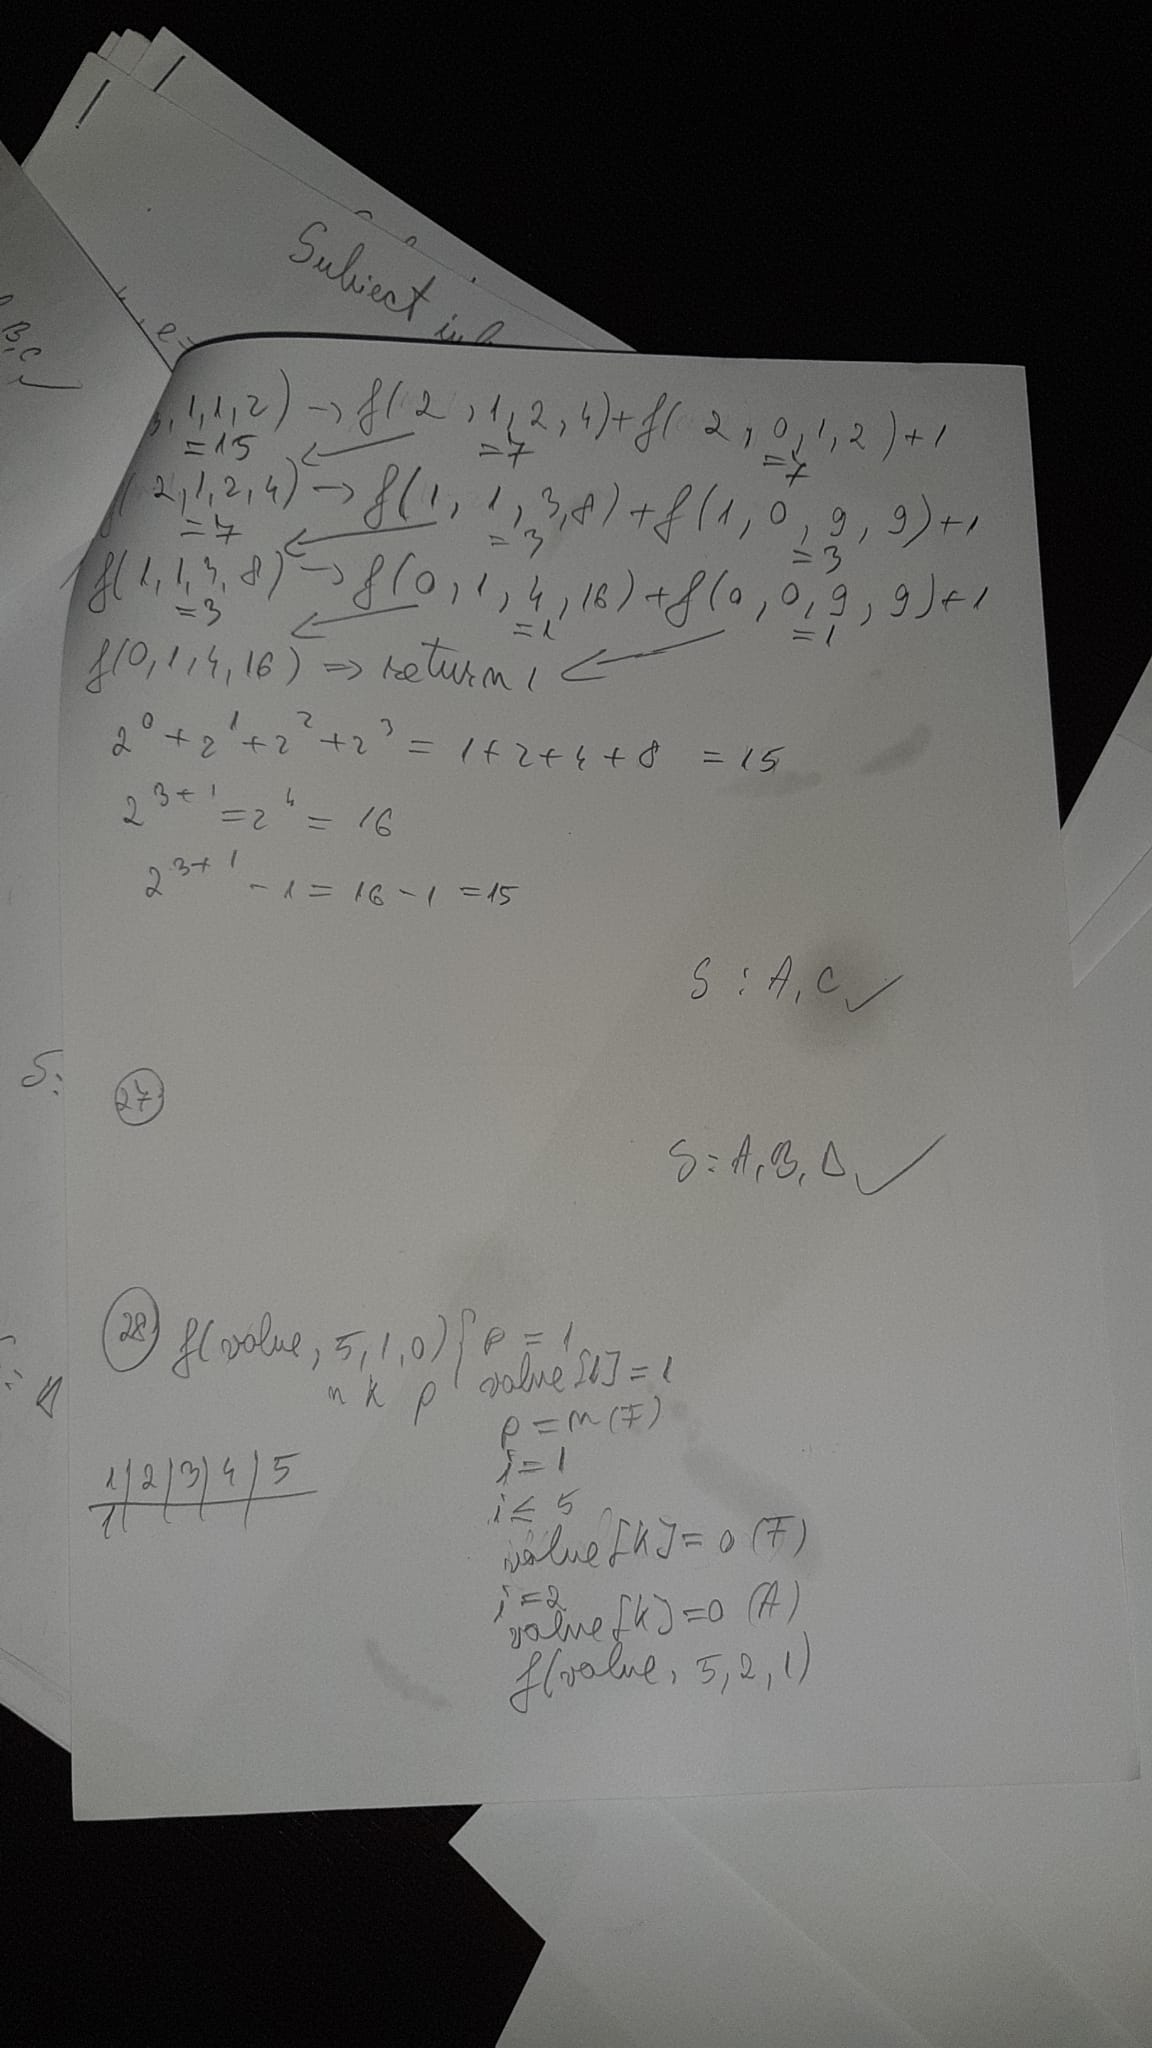 Subiect
B, C
e=
, 1, 1, 2) → f(2, 1, 2, 4) + f(2, 0, 1, 2) + 1
=15 =7 =7
f(2, 1, 2, 4) → f(1, 1, 3, 8) + f(1, 0, 9, 9) + 1
=7 =3 =3
f(1, 1, 3, 8) → f(0, 1, 4, 16) + f(0, 0, 9, 9) + 1
=3 =1 =1
f(0, 1, 4, 16) ⇒ return 1
2⁰ + 2¹ + 2² + 2³ = 1 + 2 + 4 + 8 = 15
2³⁺¹ = 2⁴ = 16
2³⁺¹ - 1 = 16 - 1 = 15
S : A, C ✓
S:
27
S: A, B, D ✓
28 f(value, 5, 1, 0) { p = 1
n k p value[1] = 1
p = n (F)
i = 1
1 | 2 | 3 | 4 | 5
i ≤ 5
1
value[k] = 0 (F)
i = 2
value[k] = 0 (A)
f(value, 5, 2, 1)